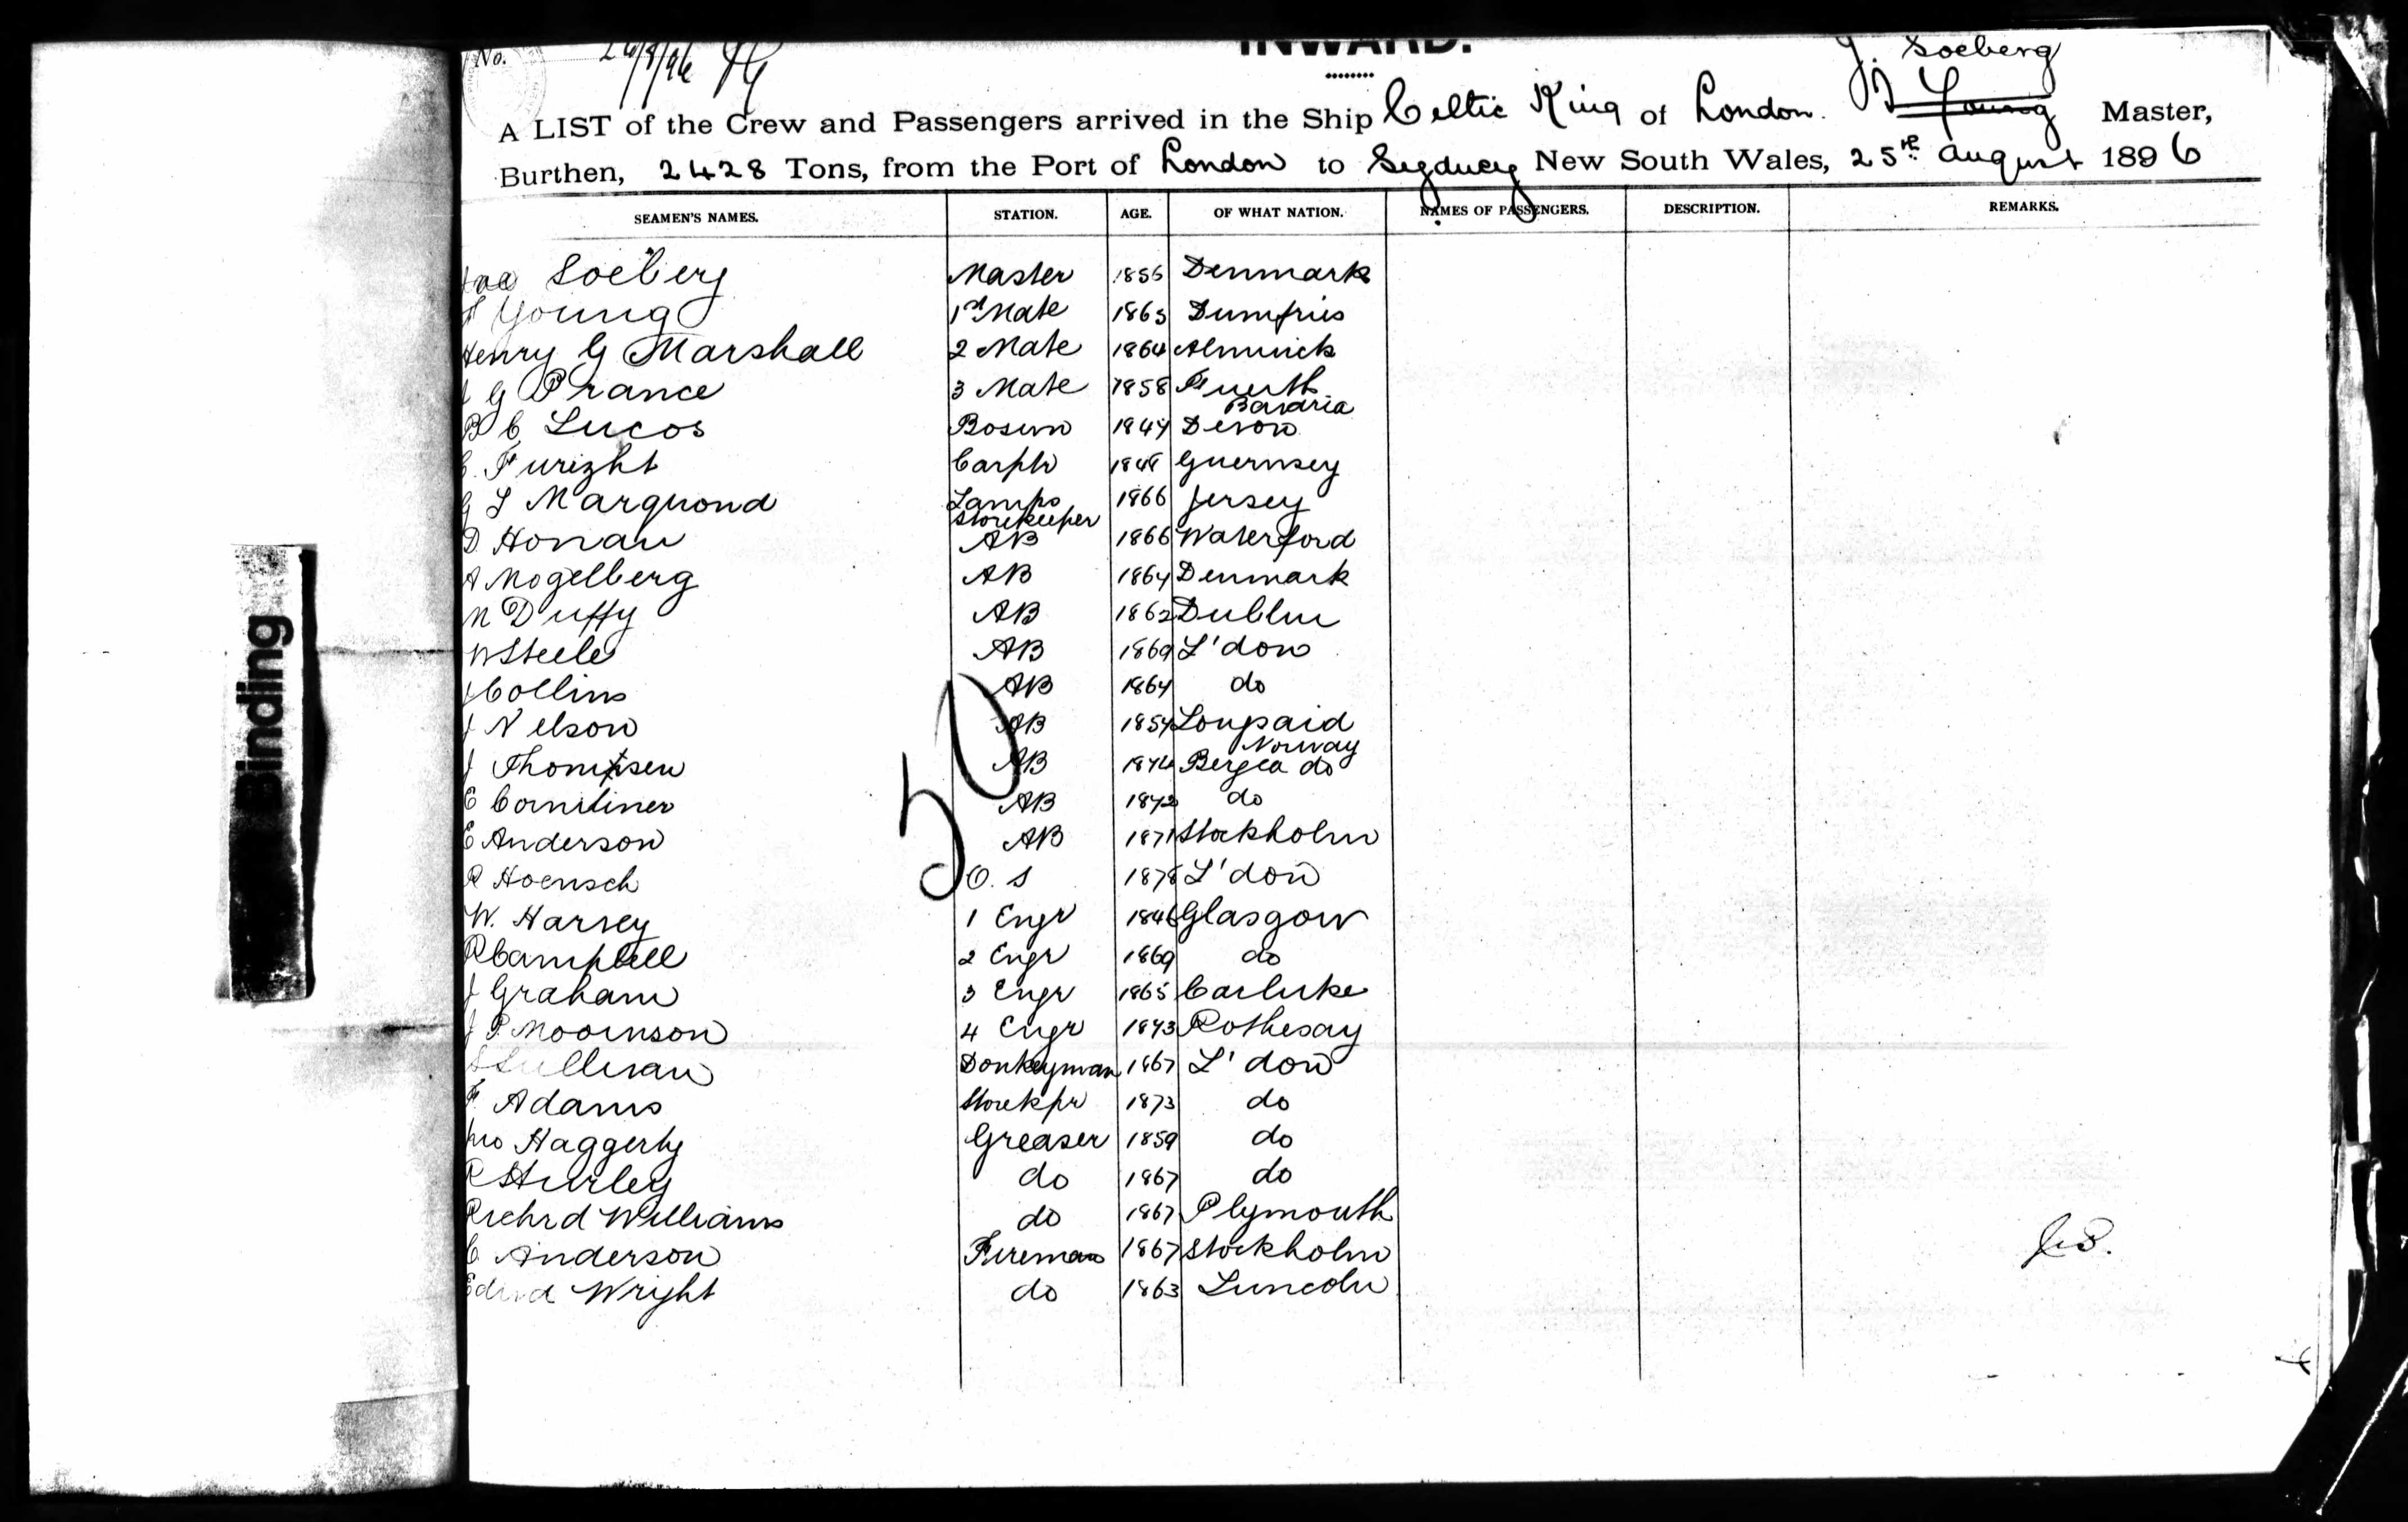 No. 26/8/96
INWARD.
J. Soeberg
A LIST of the Crew and Passengers arrived in the Ship Celtic King of London. Young Master,
Burthen, 2428 Tons, from the Port of London to Sydney New South Wales, 25th August 1896
SEAMEN'S NAMES. STATION. AGE. OF WHAT NATION. NAMES OF PASSENGERS. DESCRIPTION. REMARKS.
Soeberg Master 1856 Denmark
Young 1st Mate 1863 Dumfries
Henry G Marshall 2 Mate 1864 Alnwick
J G Prance 3 Mate 1858 Fuerth
Bavaria
B C Lucos Bosun 1847 Devon
C. Furizht Carptr Guernsey
G L Marquond Lamps 1866 Jersey
Storekeeper
D Honan AB 1866 Waterford
A Mogelberg AB 1864 Denmark
M Duffy AB 1862 Dublin
W Steele AB 1869 L'don
J Collins AB 1864 do
J Nelson AB 1854 Loupaid
Norway
J Thomsen AB 1874 Bergen do
E AB 1872 do
E Anderson AB 1871 Stockholm
R Hoensch O. S 1878 L'don
50
W. Harvey 1 Engr 1846 Glasgow
R Campbell 2 Engr 1869 do
J Graham 3 Engr 1865 Carluke
J P Moornson 4 Engr 1873 Rothesay
Sullivan Donkeyman 1867 L'don
F Adams Storekpr 1873 do
Jno Haggerty Greaser 1859 do
R Hurley do 1867 do
Richrd Williams do 1867 Plymouth
C Anderson Fireman 1867 Stockholm
Edwd Wright do 1863 Lincoln
JS.
Binding